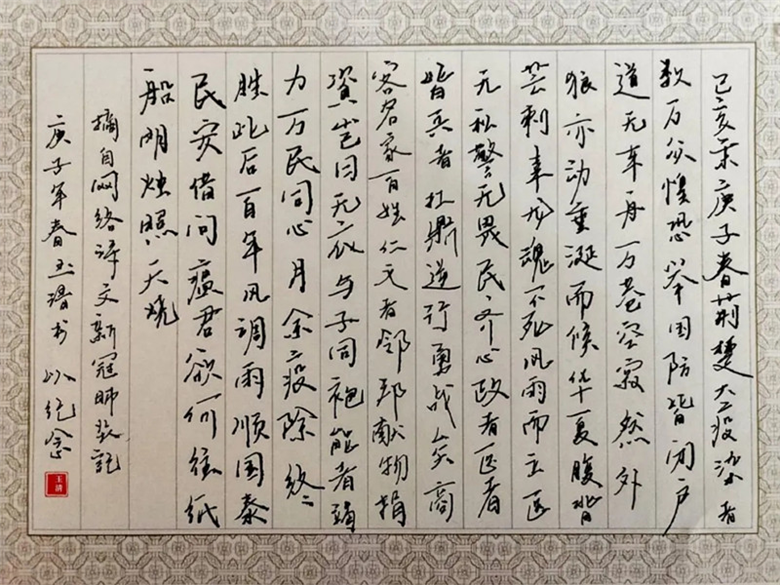 己亥末庚子春荆楚大疫染者
数万众惶恐举国防皆闭户
道无车舟万巷空寂然外
狼亦动垂涎而候华夏腹背
芒刺幸龙魂不死风雨而立医
无私警无畏民齐心政者医者
皆兵者扛鼎逆行勇战矣商
客名家百姓仁义者邻邦献物捐
资岂曰无衣与子同袍能者竭
力万民同心月余疫除终
胜此后百年风调雨顺国泰
民安借问瘟君欲何往纸
船明烛照天烧
摘自网络译文新冠肺炎記
庚子年春玉书以纪念